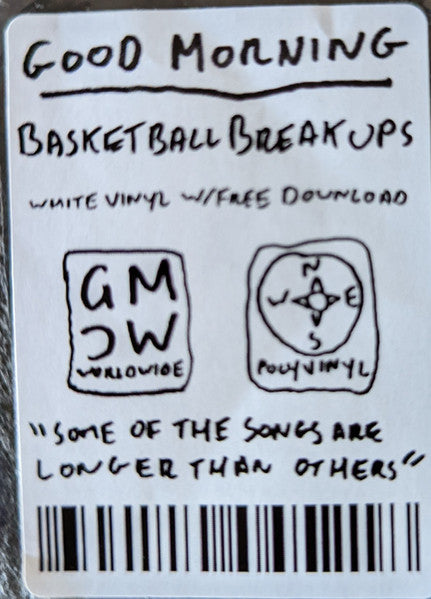 GOOD MORNING
BASKETBALL BREAKUPS
WHITE VINYL W/FREE DOWNLOAD
GM
ƆW
WORLDWIDE
N
W E
S
POLYVINYL
"SOME OF THE SONGS ARE
LONGER THAN OTHERS"